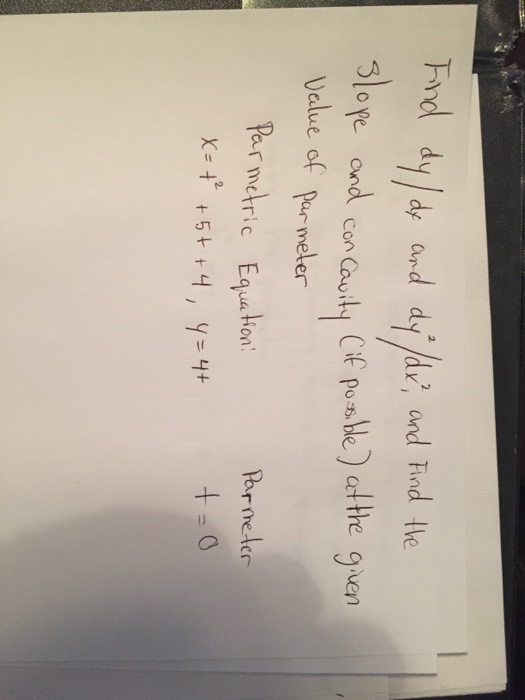 Find dy/dx and dy²/dx², and Find the
slope and concavity (if possible) at the given
Value of parmeter
Parmetric Equation: Parmeter
x = t² + 5t + 4, y = 4t t = 0